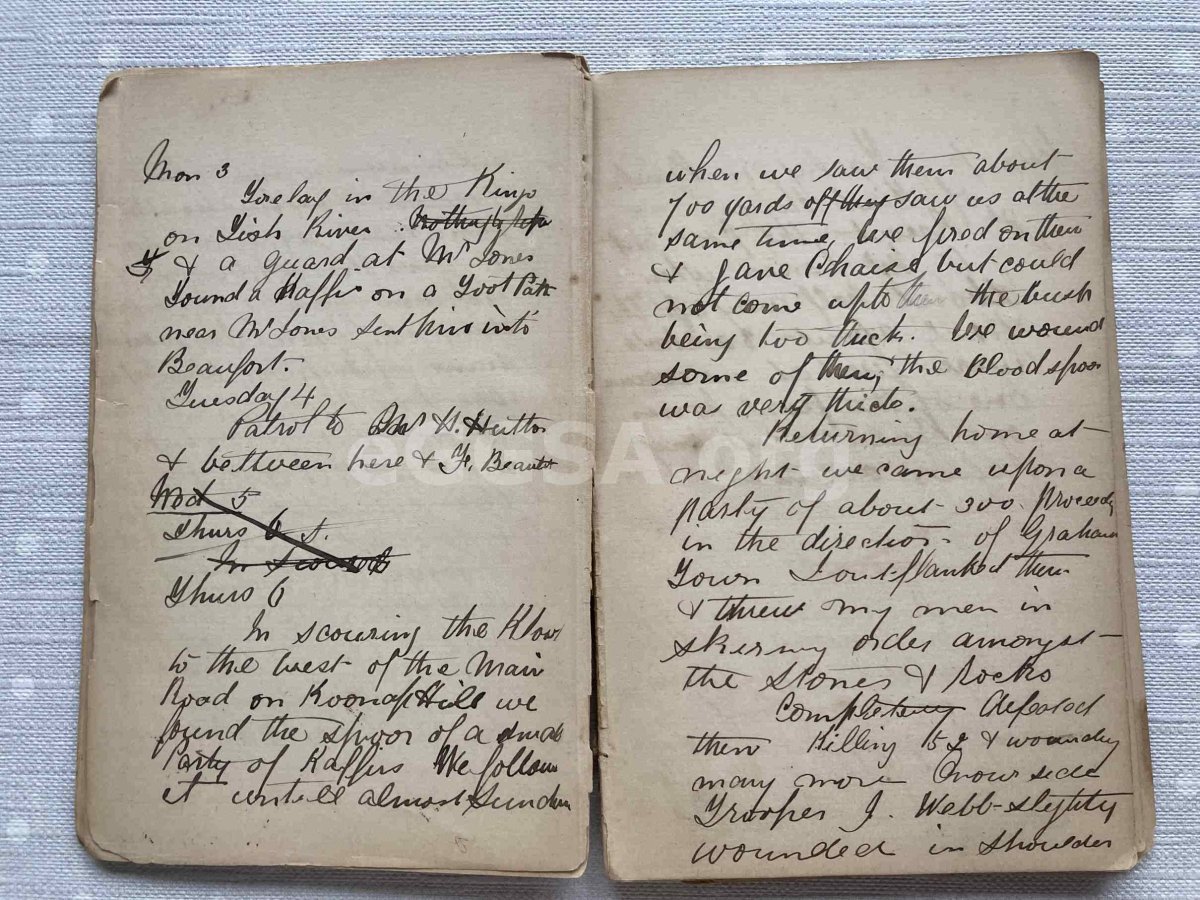 Mon 3
Forelay in the Kings
on Fish River
& a guard at Mr Jones
Found a Kaffir on a Foot Path
near Mr Jones sent him into
Beaufort.
Tuesday 4
Patrol to H. Hutton
& between here & F. Beaufort
Wed 5
Thurs 6
In
Thurs 6
In scouring the Kloof
to the west of the Main
Road on Koonap Hill we
found the spoor of a small
Party of Kaffirs We follow
it untill almost Sundown
when we saw them about
700 yards off they saw us at the
same time, we fired on them
& gave Chaise but could
not come up to them the bush
being too thick. We wound
some of them, the blood spoor
was very thick.
Returning home at
night we came upon a
party of about 300 proceedg
in the direction of Grahams
Town I outflanked them
& threw my men in
skermy order amongst
the Stones & rocks
Completely defeated
them Killing 52 & woundg
many more On our side
Trooper J. Webb slightly
wounded in shoulder
eGGSA.org